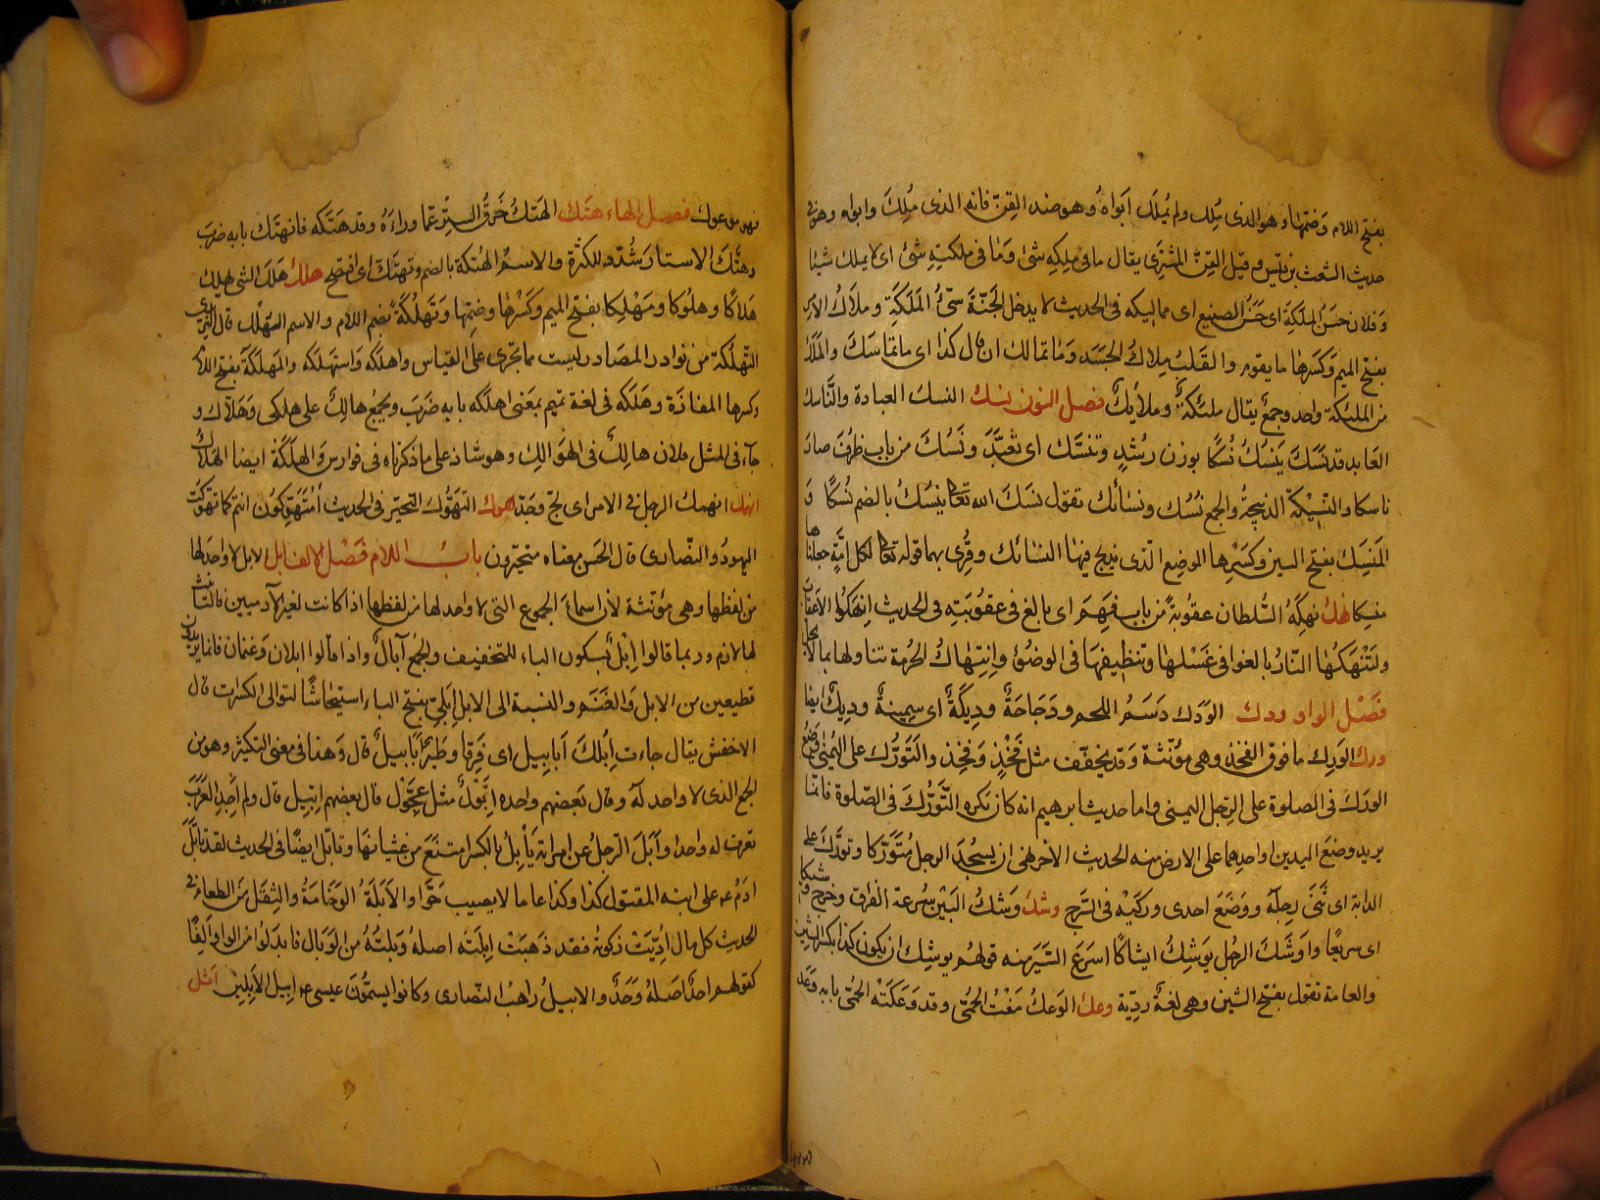 بفتح اللام وضمّها وهو الذى مُلِك ولم يُملَك اَبَواهُ وهو ضد القِنّ فانه الذى مُلِكَ وابواه وهو فى
حديث الاشعث بن قيس وقيل القِنّ المُشترَى يقال ما فى مِلكِه شئ وَمَا فى ملكتِهِ شئ اى لا يملك شيئا
وَفلان حَسَنُ المَلَكَةِ اى حَسَنُ الصنيع اى مماليكه فى الحديث لا يدخل الجَنّةَ سئُ المَلَكَةِ وملاكُ الامر
بفتح الميم وكَسرها ما يقوم به والقَلبُ مِلاكُ الجَسَدِ وَمَا تمالك ان قال كذا اى ما تماسَكَ والمَلَكُ
من الملئكة واحد وجمعٌ يقال ملئكةٌ وملائِكٌ فصل النون نسك النسك العبادة والنَّاسك
العَابد قد نَسَكَ يَنسُكُ نُسكًا بوزن رُشدٍ وتنسَّك اى تعَبَّدَ ونَسُكَ من باب ظرُفَ صارَ
ناسكا والنَسِيكةُ الذبيحةُ والجمع نُسُك ونسَائك تقول نسَكَ الله تعالى ينسُكُ بالضم نُسكًا وَ
المَنسِكَ بفتح السين وكَسْرِها الموضِع الّذى تذبح فيها النسَائك وقُرِئ بهما قوله تعالى لكل اُمّةٍ جعلنا
منسكا نهك نهِكَهُ السُّلطان عقوبةً من باب فَهِمَ اى بالغ فى عقوبَتِه فى الحديث اِنهَكوا الاعقاب
ولتنْهَكنّها النّارُ بالغوا فى غَسْلها وتنظيفها فى الوضُوْ وانتِهاكُ الحُرمة تناولها بما لا يحل
فَصْل الواو ودك الوَدَك دَسَمُ اللحم ودَجَاجَةٌ ودِيكَةٌ اى سمِينةٌ ودِيكٌ ايضا
ورك الوَرِك ما فوق الفخذ وهى مؤنّثة وَقد يخفّف مثل فخْذٍ وَفخِذ والتَوَرُّك على اليُمنَى وَضْعُ
الورَك فى الصلوة على الرِجل اليمنى واما حديث ابرهيم انه كان يكره التَّوَرُّكَ فى الصّلوة فانما
يريد وضعَ اليدين او احدهما على الارض منه الحديث الآخر نهى ان يسجُدَ الرجل مُتَوَرّكا وتورَّكَ على
الدابة اى ثَنَى رِجله ووضَعَ احدى وركَيْه فى السَّرج وشك وَشكُ البَيْنِ سُرعة الفراق وخرج وشيكا
اى سريعًا واَوشَكَ الرجُل يوشِكُ ايشاكًا اسرَع السَّيرَ منه قولهُم يوشِك ان يكون كذا بكسر الشين
والعامة تقول بفتح الشين وهى لغةٌ رديّة وعك الوَعكُ مَغْث الحُمَّى وقد وَعَكَتْه الحُمّى بابه وعَدَ
فهو موعوك فصل الهاء هتك الهَتكُ خَرقُ السِّترِ عمّا وراءَهُ وقد هَتَكه فانهتَك بابه ضرَبَ
وهتَّكَ الاستار شُدّد للكثرة والاسمُ الهُتكة بالضم وتهتّكَ اى افتضح هلك هَلَكَ الشئ يهلك
هَلاكًا وهلُوكا ومَهْلِكا بفتح الميم وكَسْرها وضمّها وَتَهْلُكَةً بضم اللام والاسم الهُلك قال اليزيدى
التّهلُكة من نوادر المصَادر ليست مما تجرى على القياس واهلكه وَاستهلكه والمَهلكَةُ بفتح اللام
وكسرها المفازَة وهَلَكه فى لغة تميم بمَعنى اهلكه بابه ضرَبَ ويُجمَعُ هالِكٌ على هلكى وَهَلّاك و
جآء فى المثل فلان هالِكٌ فى الهَوَالِكِ وهو شاذ على ما ذكرناه فى فوارس وَالهلَكَةُ ايضا الهَلاكُ
انهمك انهمك الرجل فى الامر اى لجَّ وَجَدَّ هوك التَهوُّك التحيّر فى الحديث اَمُتَهَوّكُون انتم كما تهوّكت
اليهودُ والنّصارى قال الحَسن معناه متحيّرون باب اللام فَصْل الالف ابل الابل لا واحد لها
من لفظها وهى مؤنّثة لأن اسماءَ الجموع التى لا واحد لها من لفظها اذا كانت لغير الآدميين فالتأنيث
لها لازم وربما قالوا اِبْل بسكون الباء للتخفيف والجمع آبالٌ واذا قالوا ابلان وَغنمان فانما يريدون
قطيعين من الابل وَالغَنَم والنسبة الى الابل اِبَلىّ بفتح الباء استيحاشًا لتوالى الكسرات قال
الاخفش يقال جاءت اِبلكَ اَبابيل اى فِرقا وطَيْرًا بابيل قال وَهذا فى معنى التكثير وهو من
الجمع الذى لا واحد له وقال بَعضهم واحده اِبَّوْلٌ مثل عِجَّوْل قال بعضهم اِبّيل قال ولم اَجِد العَرَبَ
تعرف له واحدا واَبَلَ الرّجلُ عن امرأته يَأبِلُ بالكسر امتنَعَ من غشيانها وتأبّلَ ايضًا فى الحديث لقد تأبّلَ
ادَمُ عم على ابنه المقتول كذا وكذا عاما لا يصيب حَوّا والاَبَلَةُ الوَخَامَةُ والثِقَلُ مِنَ الطعام فى
الحديث كل مال اُدِّيَتْ زكوتُهُ فقد ذهَبَتْ اِبلَته اصلهُ وَبلَتُهُ من الوَبال فابدَلوا من الواو اَلِفًا
كقولهم احدٌ اَصلهُ وَحَدٌ والابيلُ راهبُ النّصارى وكانوا يسمّونَ عيسى عم ابِيل الاَبيلِين اثل